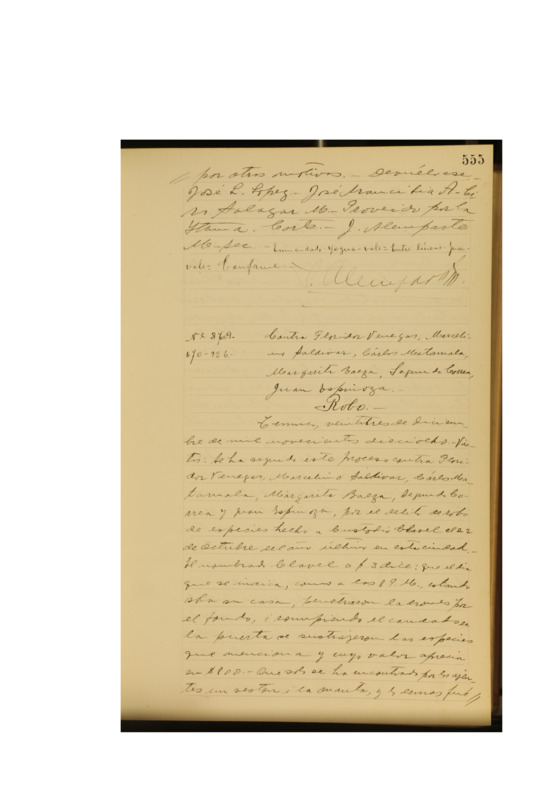 555
por otros motivos. — Devuélvase. —
José L. Lopez — José Arancibia A. — Ci-
ro Salazar M — Proveido por la
Iltma. Corte. — J. Alemparte
M — Sec — Enmendado — vale — Entre lineas —
vale = Conforme
Nº 
Contra Floridor Venegas, Marceli-
no Saldivar, Cárlos Matamala,
Margarita Baeza, Segundo Correa,
Juan Espinoza. —
Robo. —
Temuco, veintitres de Diciem-
bre de mil novecientos dieciocho. — Vis-
tos: Se ha seguido este proceso contra Flori-
dor Venegas, Marcelino Saldivar, Cárlos Ma-
tamala, Margarita Baeza, Segundo Co-
rrea y Juan Espinoza, por el delito de robo
de especies hecho a Custodio Clavel el 22
de Octubre del año último en esta ciudad. —
El nombrado Clavel a f. 3 dice: que el dia
que se indica, como a las 8 P.M. estando
sola su casa, penetraron ladrones por
el fondo, i rompiendo el candado de
la puerta se sustrajeron las especies
que menciona y cuyo valor aprecia
en $ — Que solo se ha encontrado por los ajen-
tes un i la manta, y lo demas fué